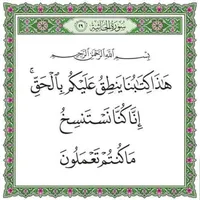 سورة الجاثية
٢٩
بِسْمِ اللَّهِ الرَّحْمَٰنِ الرَّحِيمِ
هَٰذَا كِتَابُنَا يَنطِقُ عَلَيْكُم بِالْحَقِّ ۚ
إِنَّا كُنَّا نَسْتَنسِخُ
مَا كُنتُمْ تَعْمَلُونَ